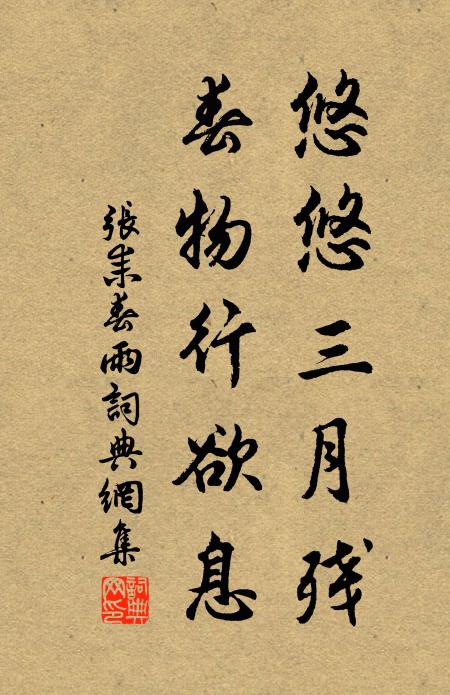 悠悠三月残
春物行欲息
張耒春雨詞典網集
詞典網印